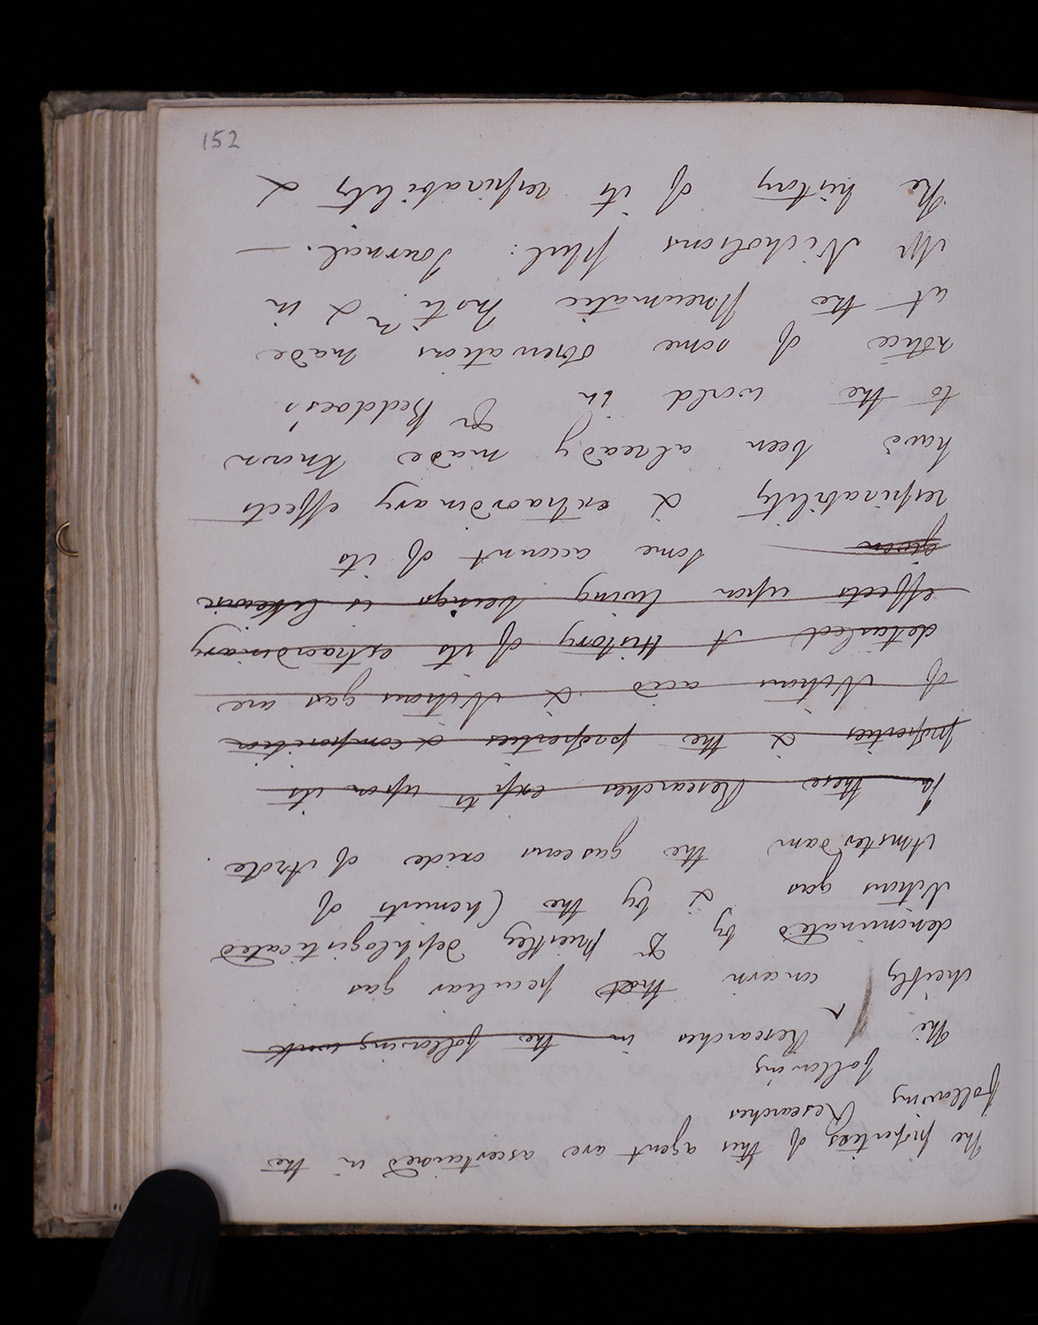 152
The properties of this agent are ascertained in the
following Researches
following
The ^ Researches in the following work
cheifly concern that peculiar gas
denominated by Dr Priestley dephlogisticated
Nitrous gas & by the Chemists of
Amsterdam the gaseous oxide of Azote
In these Researches expts upon its
properties & the properties & composition
of Nitrous acid & Nitrous gas are
detailed A History of its extraordinary
effects upon living beings is likewise
given some account of its
respirability & extraordinary effects
have been already made known
to the world in Dr Beddoes's
notice of some observations made
at the Pneumatic Instn. & in
Mr Nicholsons phil: Journal. —
The history of its respirability &